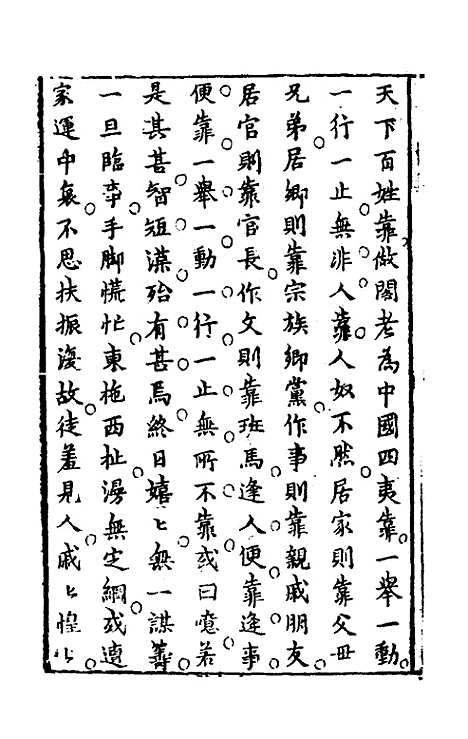 天下百姓靠做閣老為中國四夷靠一舉一動
一行一止無非人靠人奴不然居家則靠父母
兄弟居鄉則靠宗族鄉黨作事則靠親戚朋友
居官則靠官長作文則靠班馬逢人便靠逢事
便靠一舉一動一行一止無所不靠或曰噫若
是其甚智短謀殆有甚焉終日嬉〻無一謀籌
一旦臨事手脚慌忙東拖西扯漫無定綱或遭
家運中衰不思扶振漫故徒羞見人戚〻惶〻